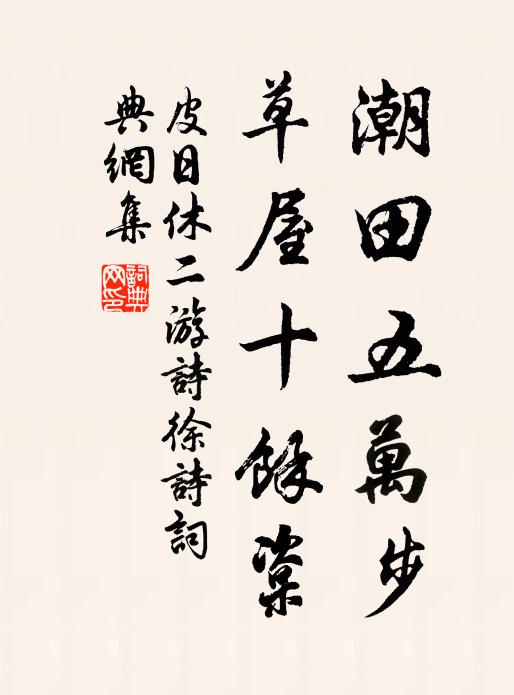 潮田五萬步
草屋十餘楶
皮日休二游詩徐詩詞
典網集
詞典
网印